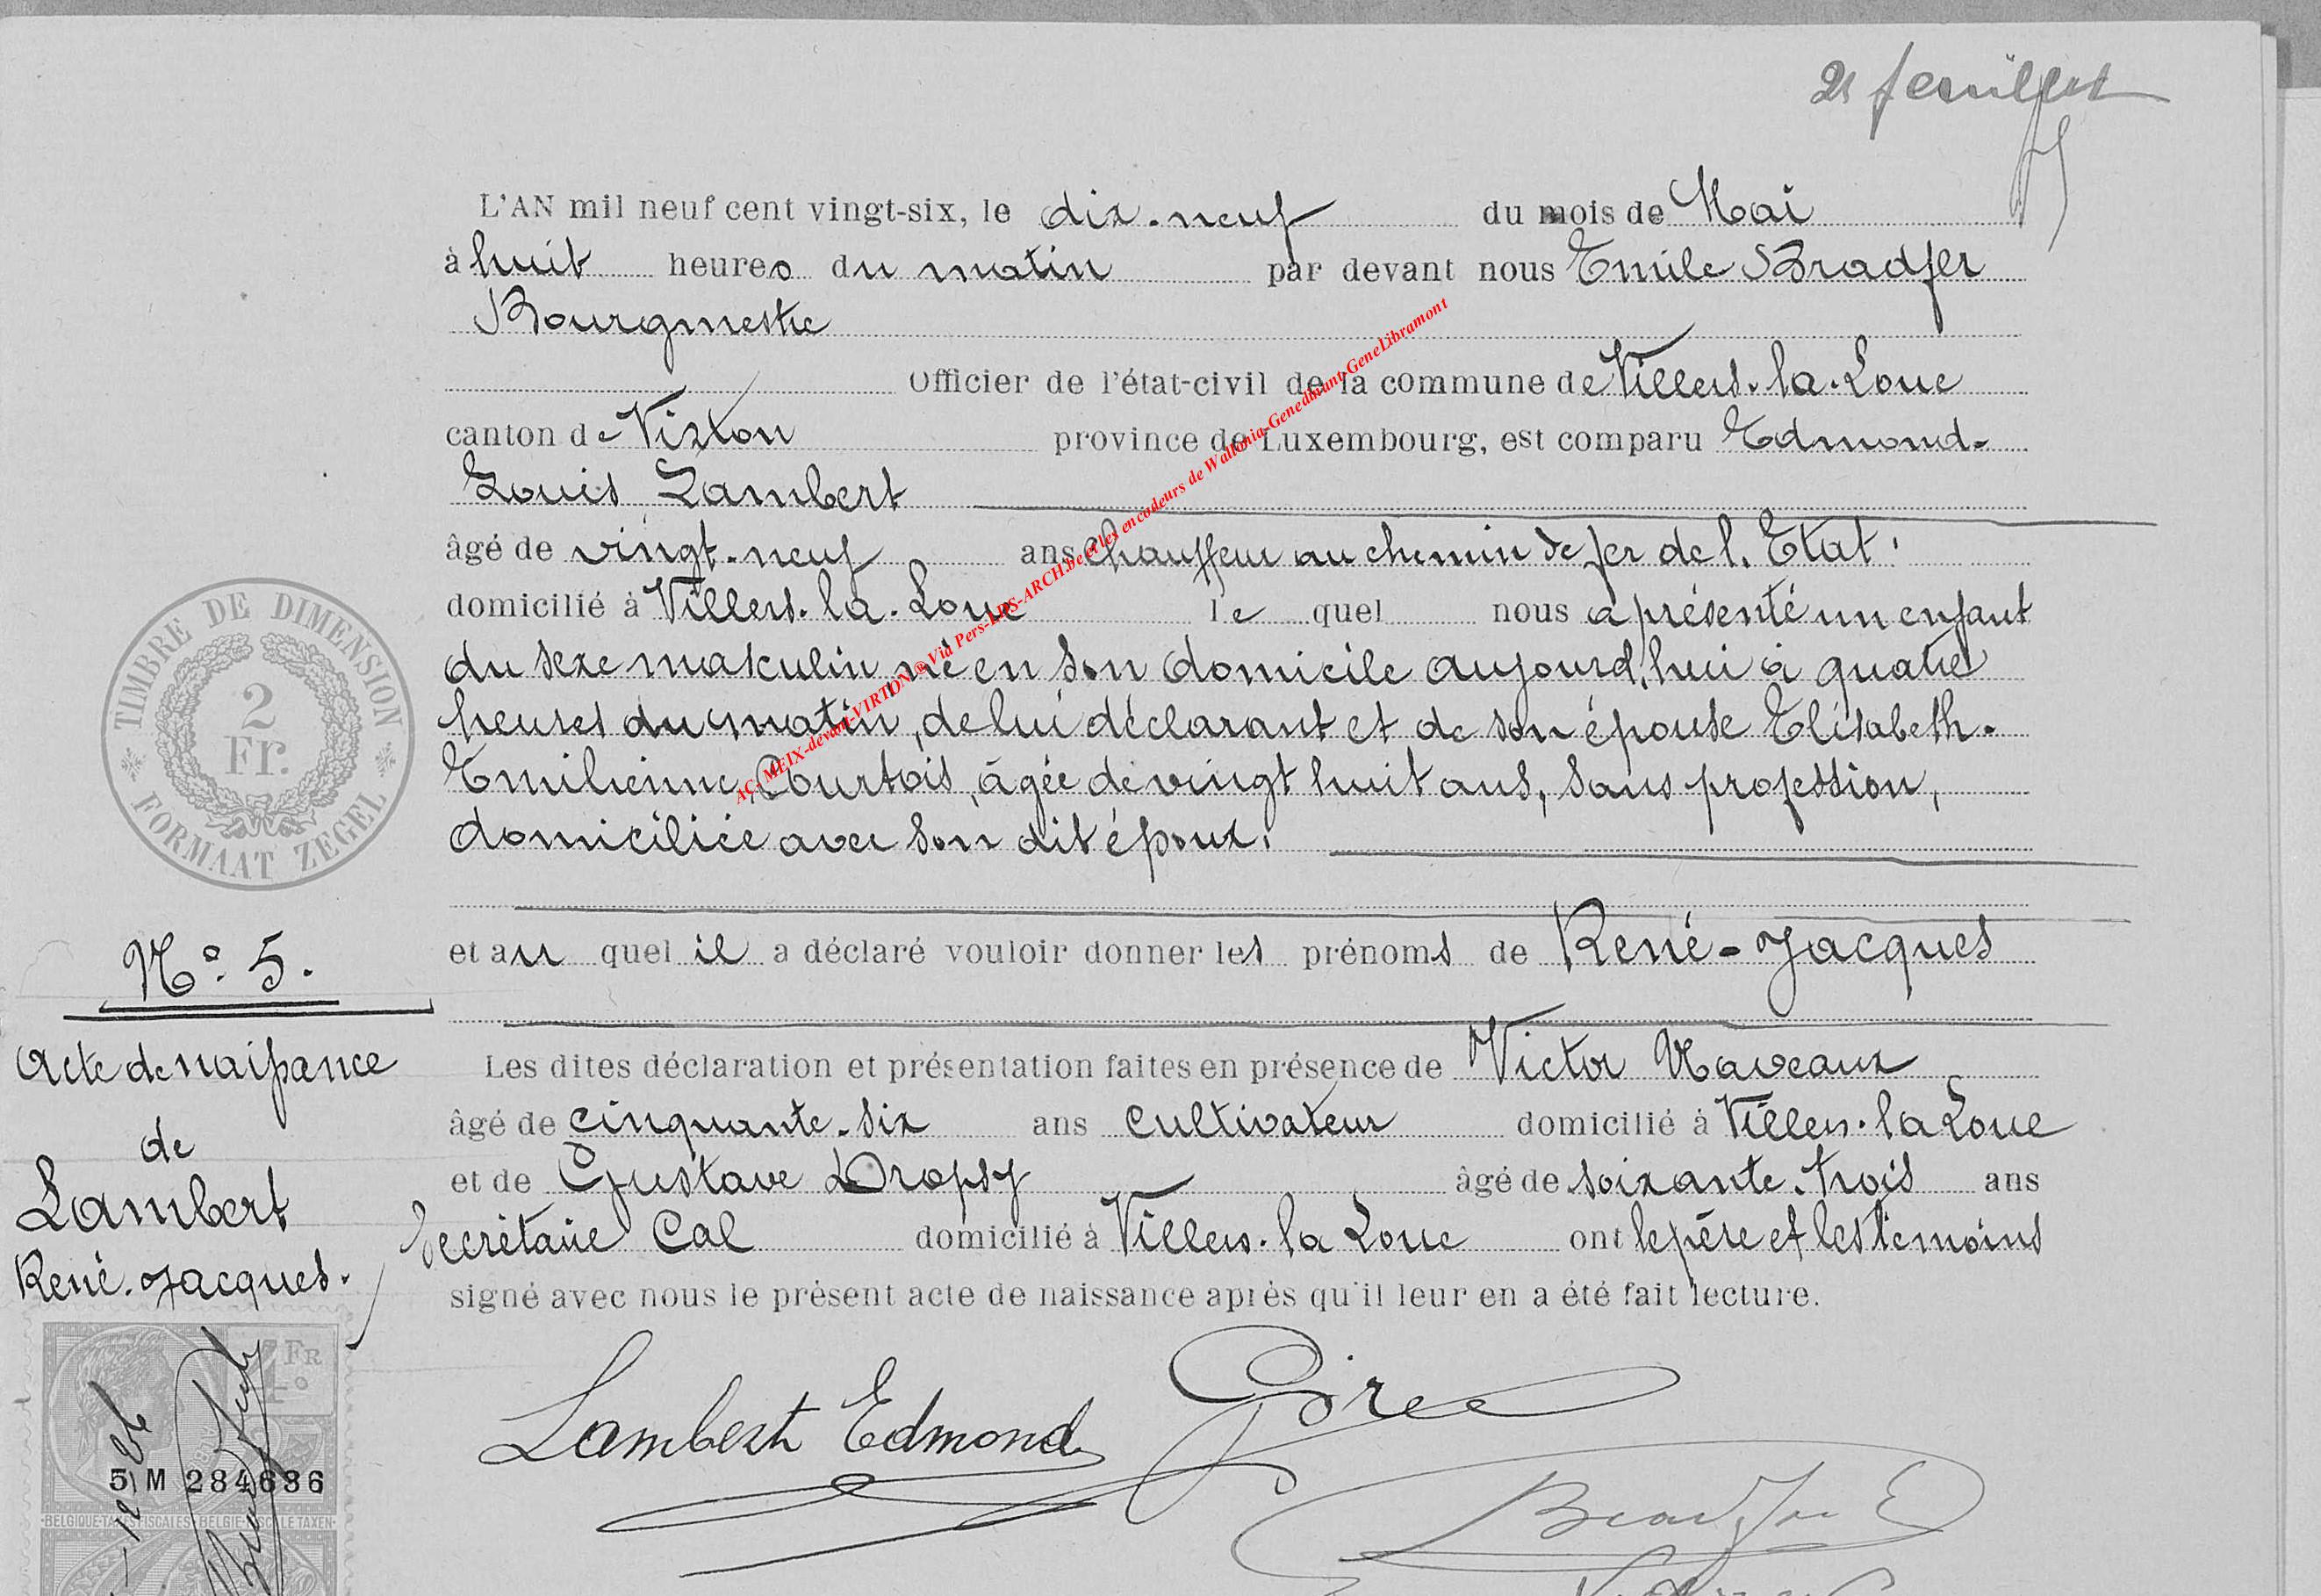 2e feuillet
L'AN mil neuf cent vingt-six, le dix-neuf du mois de Mai
à huit heures du matin par devant nous Emile Bradfer
Bourgmestre
Officier de l'état-civil de la commune de Villers-la-Loue
canton de Virton province de Luxembourg, est comparu Edmond-
Louis Lambert
âgé de vingt-neuf ans chauffeur au chemin de fer de l'Etat,
domicilié à Villers-la-Loue le quel nous a présenté un enfant
du sexe masculin, né en son domicile aujourd'hui à quatre
heures du matin, de lui déclarant et de son épouse Elisabeth-
Emilienne Courtois, âgée de vingt huit ans, sans profession,
domiciliée avec son dit époux.
et au quel il a déclaré vouloir donner les prénoms de René-Jacques
Les dites déclaration et présentation faites en présence de Victor Naveaux
âgé de cinquante-six ans cultivateur domicilié à Villers-la Loue
et de Gustave Dropsy âgé de soixante-trois ans
secrétaire Cal domicilié à Villers-la Loue ont le père et les témoins
signé avec nous le présent acte de naissance après qu'il leur en a été fait lecture.
Lambert Edmond
Bradfer E
TIMBRE DE DIMENSION
2
Fr.
FORMAAT ZEGEL
No. 5.
Acte de naissance
de
Lambert
René-Jacques.
1 FR
5 M 284636
BELGIQUE-TAXES FISCALES BELGIE-FISCALE TAXEN
AC. MEIX-devant-VIRTON ® Via Pers-LDS-ARCH.be et les encodeurs de Wallonia-Genedinant-GeneLibramont